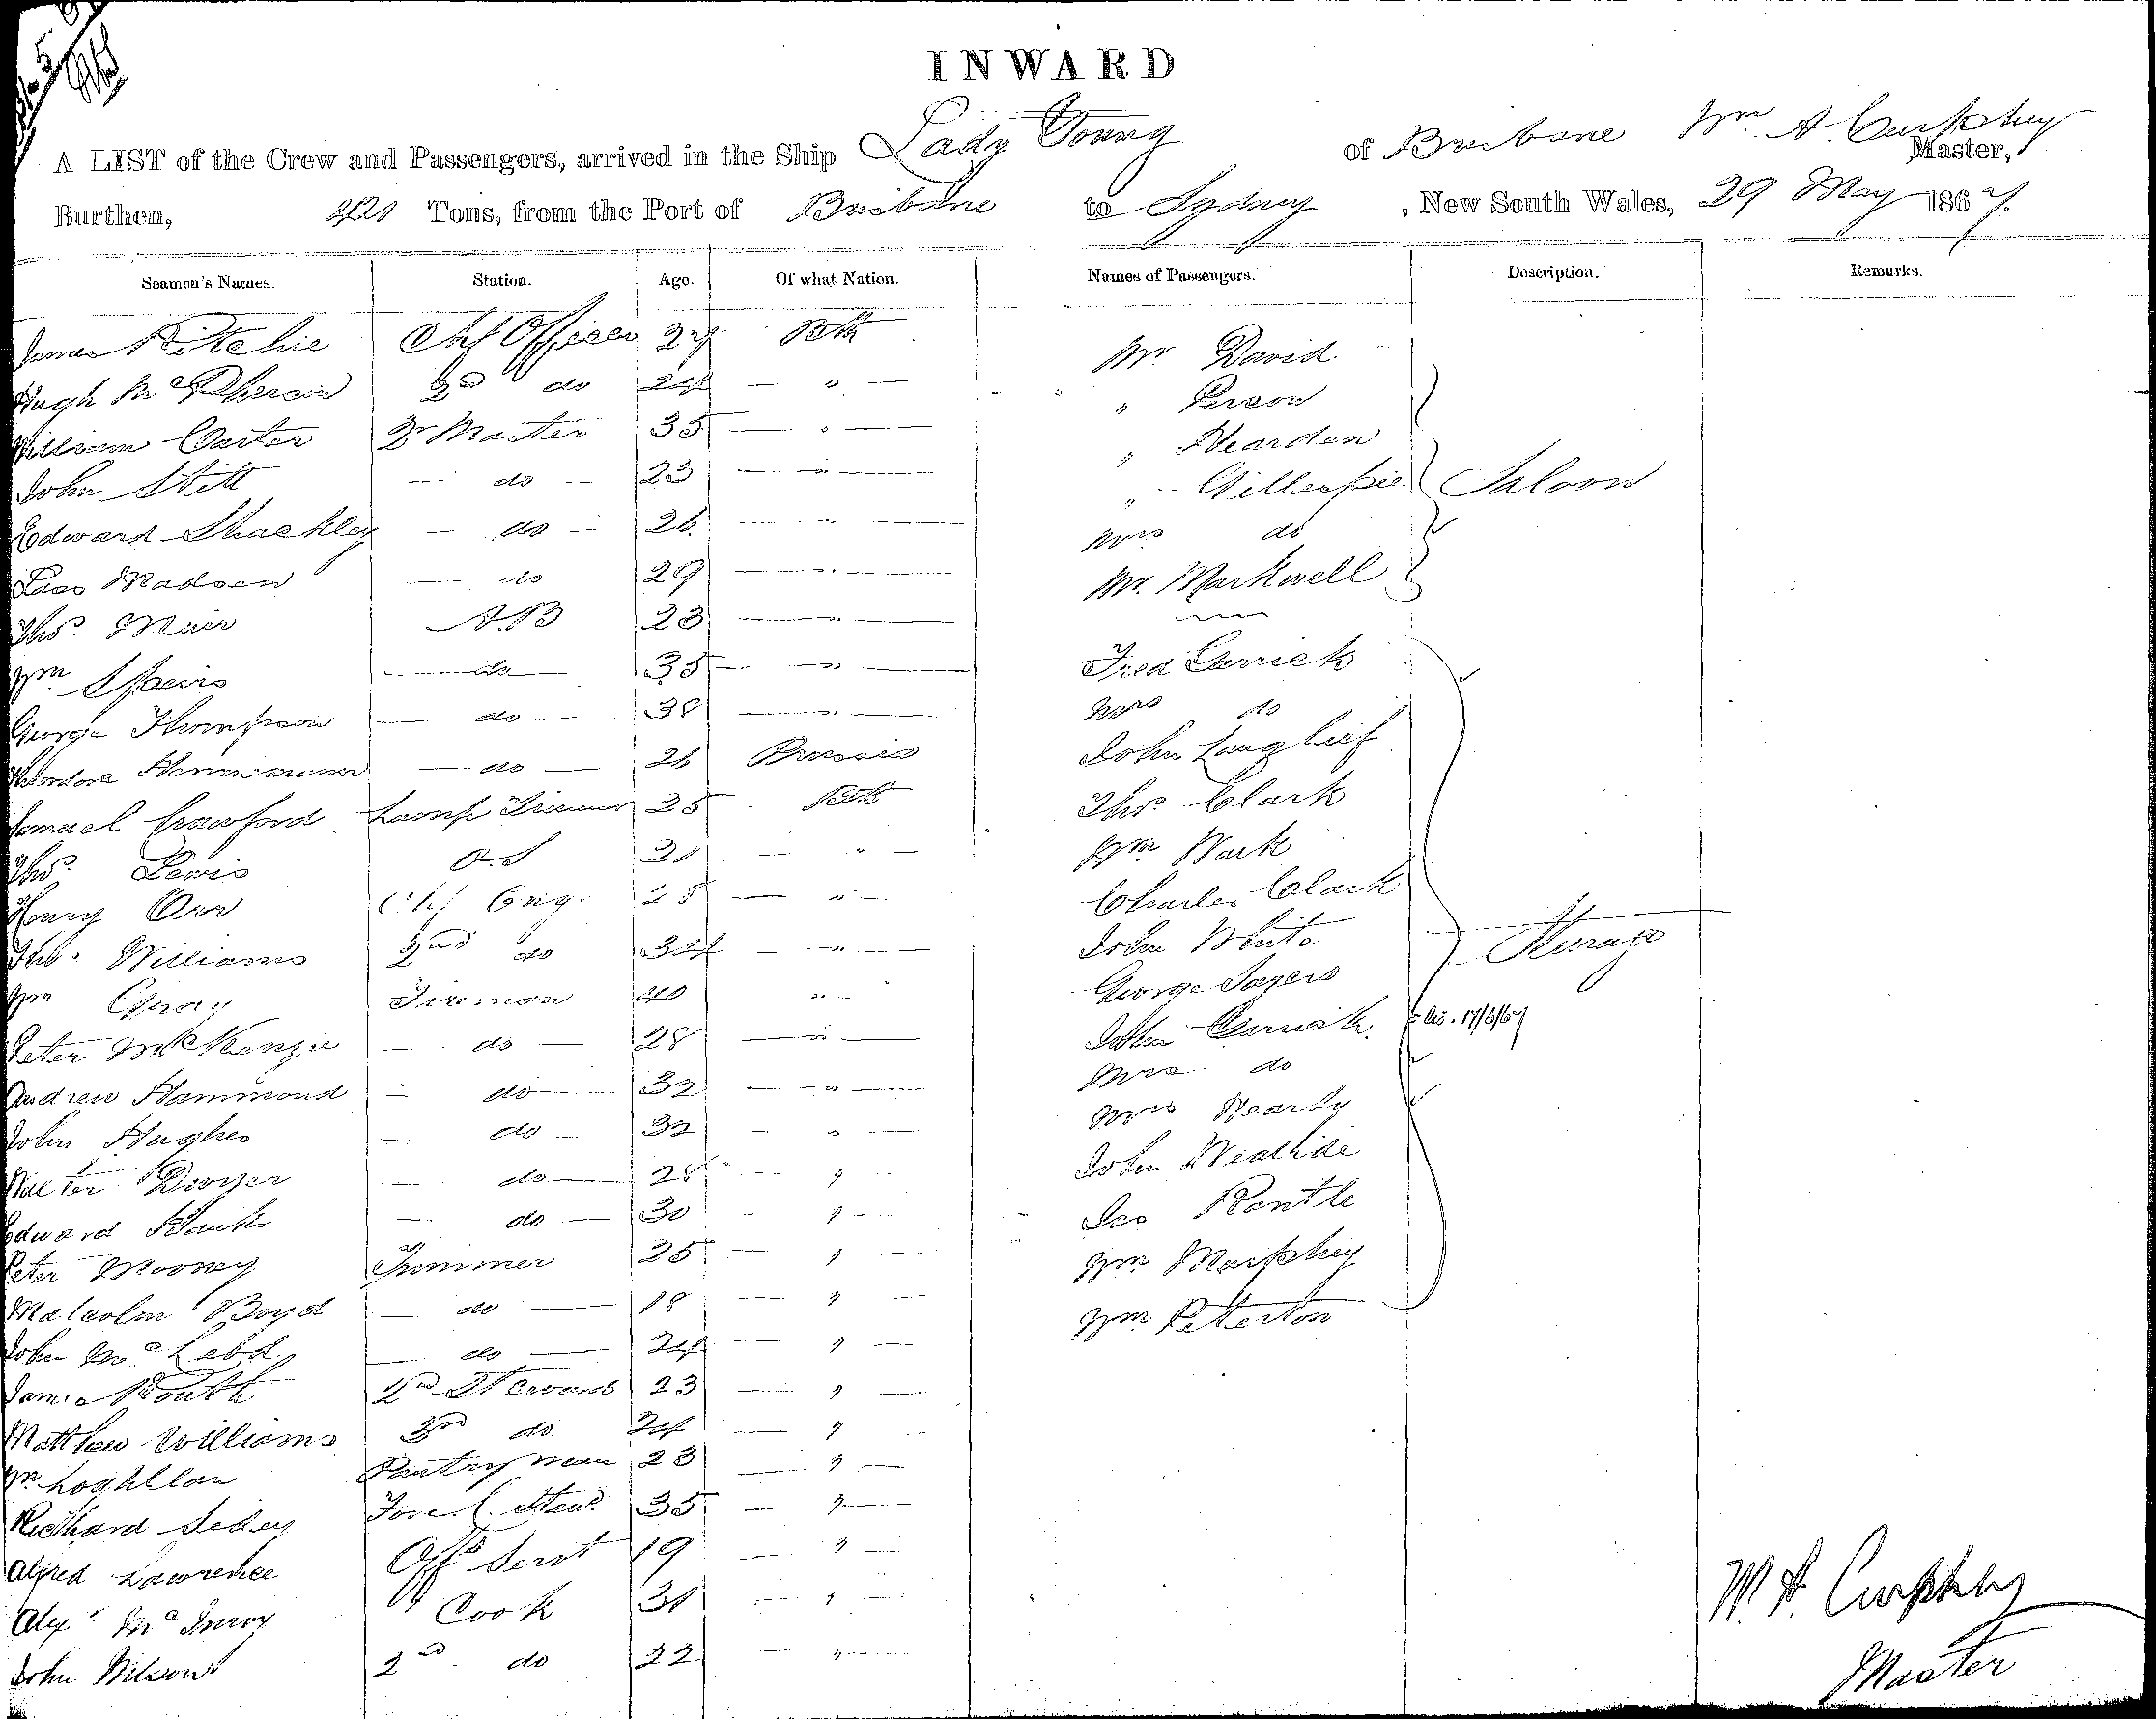 INWARD
A LIST of the Crew and Passengers, arrived in the Ship Lady Young of Brisbane Wm A. Curphey Master,
Burthen, 421 Tons, from the Port of Brisbane to Sydney, New South Wales, 29 May 1867.
Seamen's Names. Station. Age. Of what Nation. Names of Passengers. Description. Remarks.
James Ritchie Chf Officer 27 Brth Mr David
Hugh McPherson 2nd do 24 " " Person
William Carter Qr Master 35 " " Hearden
John Stitt do 23 " " Gillespie Saloon
Edward Shackley do 26 " Mrs do
Madsen do 29 " Mr. Markwell
Thos. Muir AB 23 "
Wm Spiers do 35 " Fred Carrick
George Thompson do 38 " Mrs do
do 26 Prussia John Langlief
Samuel Crawford Lamp Trimmer 25 Brth Thos Clark
Thos. Lewis O.S 21 " Wm Wark
Henry Orr Chf Eng. 28 " Charles Clark
Thos. Williams 2nd do 34 " John White
Wm Gray Fireman 40 " George Sayers Steerage
Peter McKenzie do 28 " John Carrick 17/6/67
Andrew Hammond do 32 " Mrs do
John Hughes do 32 " Mrs
Walter Dwyer do 28 " John
Edward do 30 " Jas Pantle
Peter Mooney Trimmer 25 " Wm Murphey
Malcolm Boyd do 18 " Wm Peterton
John McLeod do 24 "
James Routh 2nd Steward 23 "
Matthew Williams 3rd do 24 "
Wm Pantryman 23 "
Richard Fore C. Stewd 35 "
Alfred Lawrence Offs Servt 19 "
Alexr Cook 31 "
John Wilson 2nd do 22 "
W. A. Curphey
Master